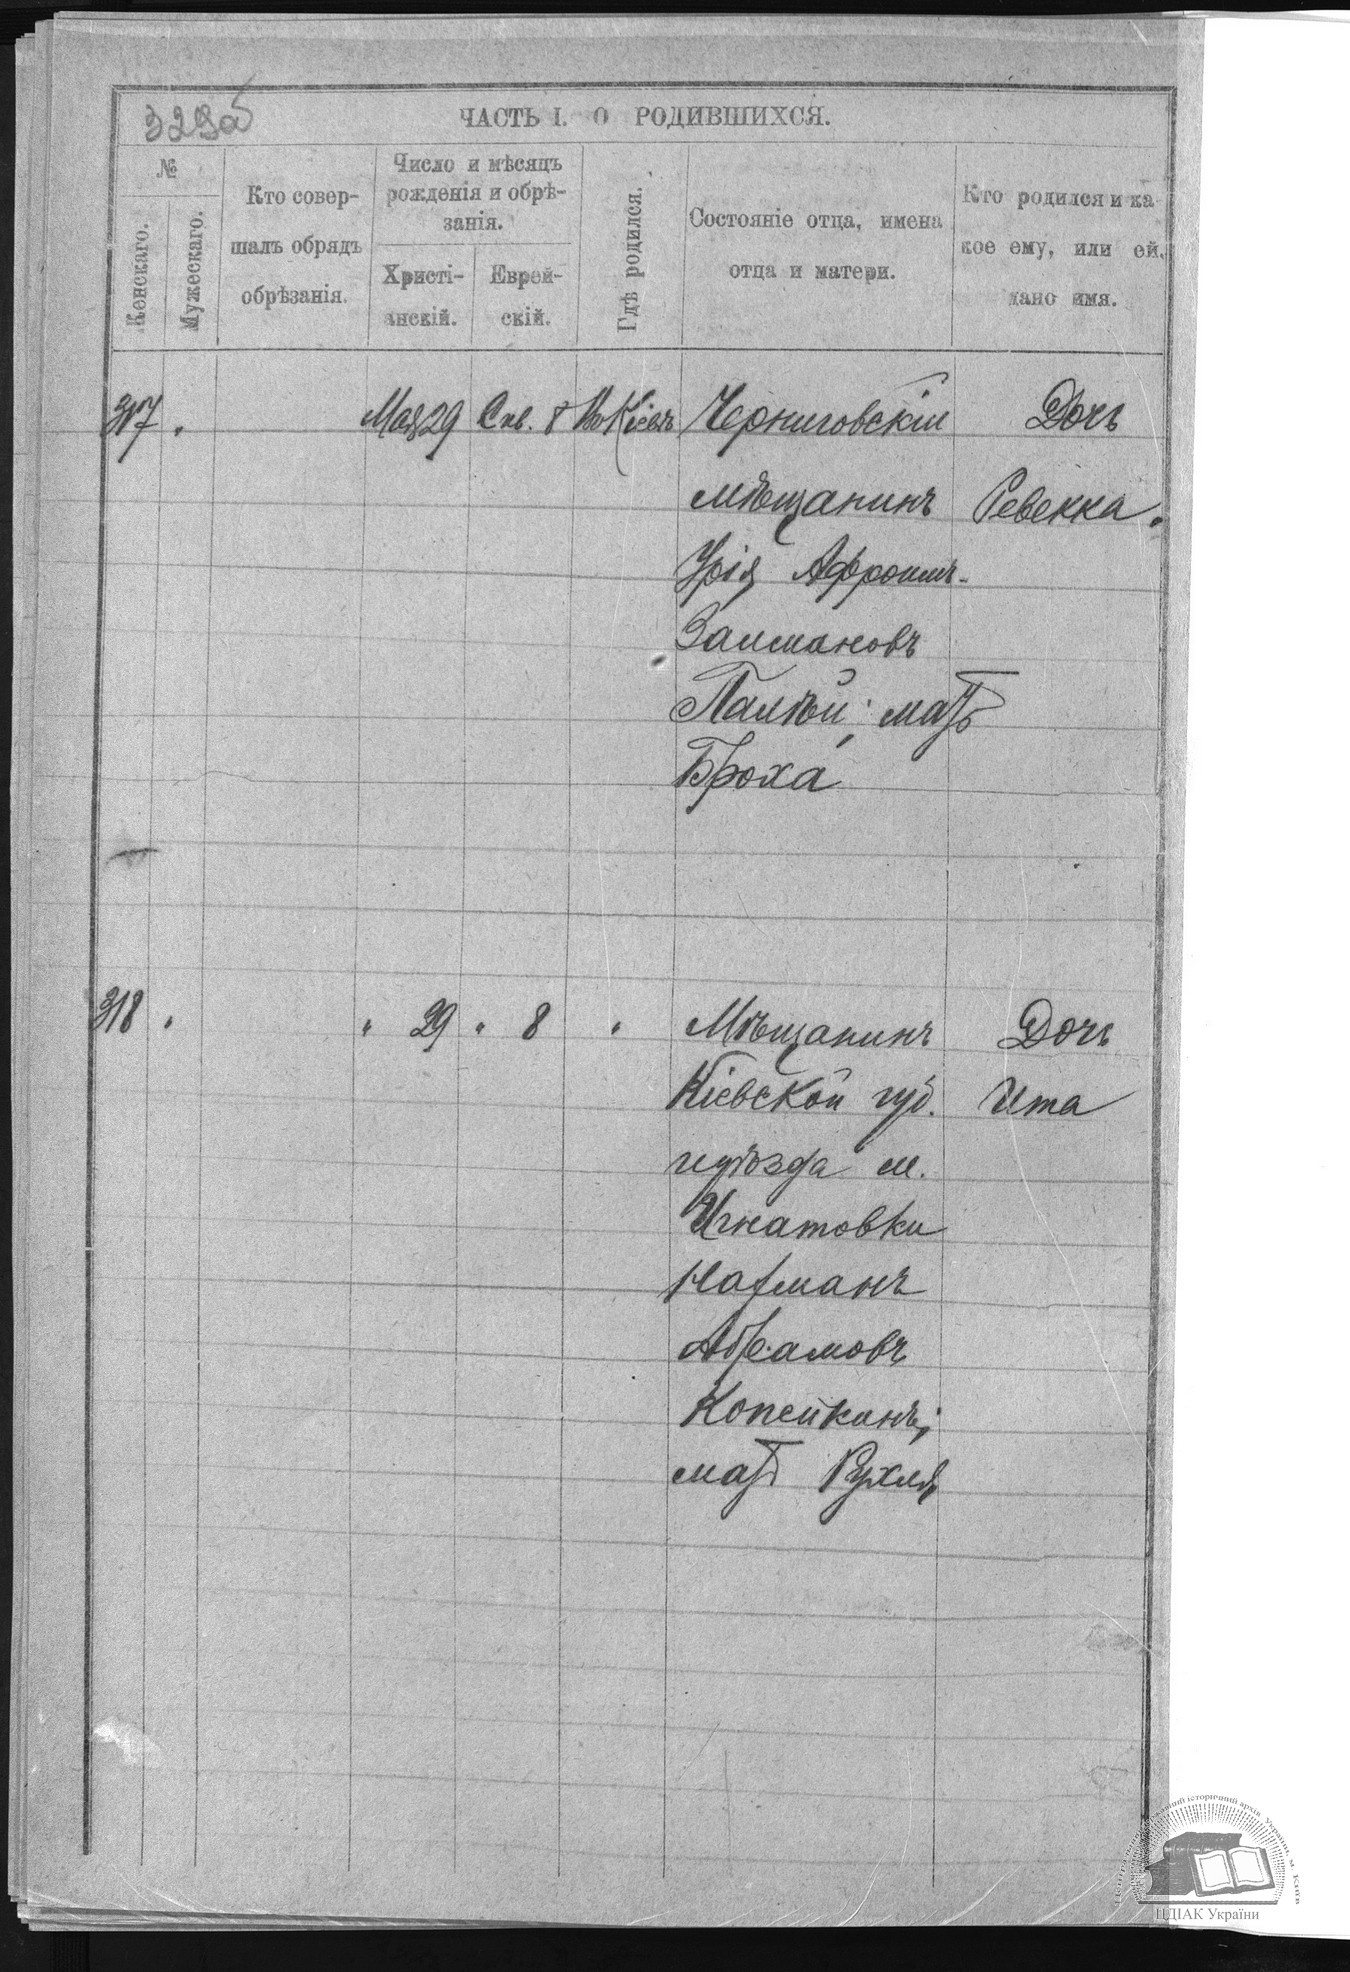 329об
ЧАСТЬ I. О РОДИВШИХСЯ.
№
Женскаго.
Мужескаго.
Кто совер-
шалъ обрядъ
обрѣзанія.
Число и мѣсяцъ
рожденія и обрѣ-
занія.
Христі-
анскій.
Еврей-
скій.
Гдѣ родился.
Состояніе отца, имена
отца и матери.
Кто родился и ка
кое ему, или ей,
дано имя.
317 Мая 29 Сив. 8 Въ Кіевѣ Черниговскій Дочь
мѣщанинъ Ревекка.
Урія Афроимъ-
Залмановъ
Палѣй; мать
Броха
318 " " 29 " 8 " Мѣщанинъ Дочь
Кіевской губ. Ита
и уѣзда м.
Игнатовки
Нахманъ
Абрамовъ
Копейкинъ;
мать Рухля
ЦДІАК України